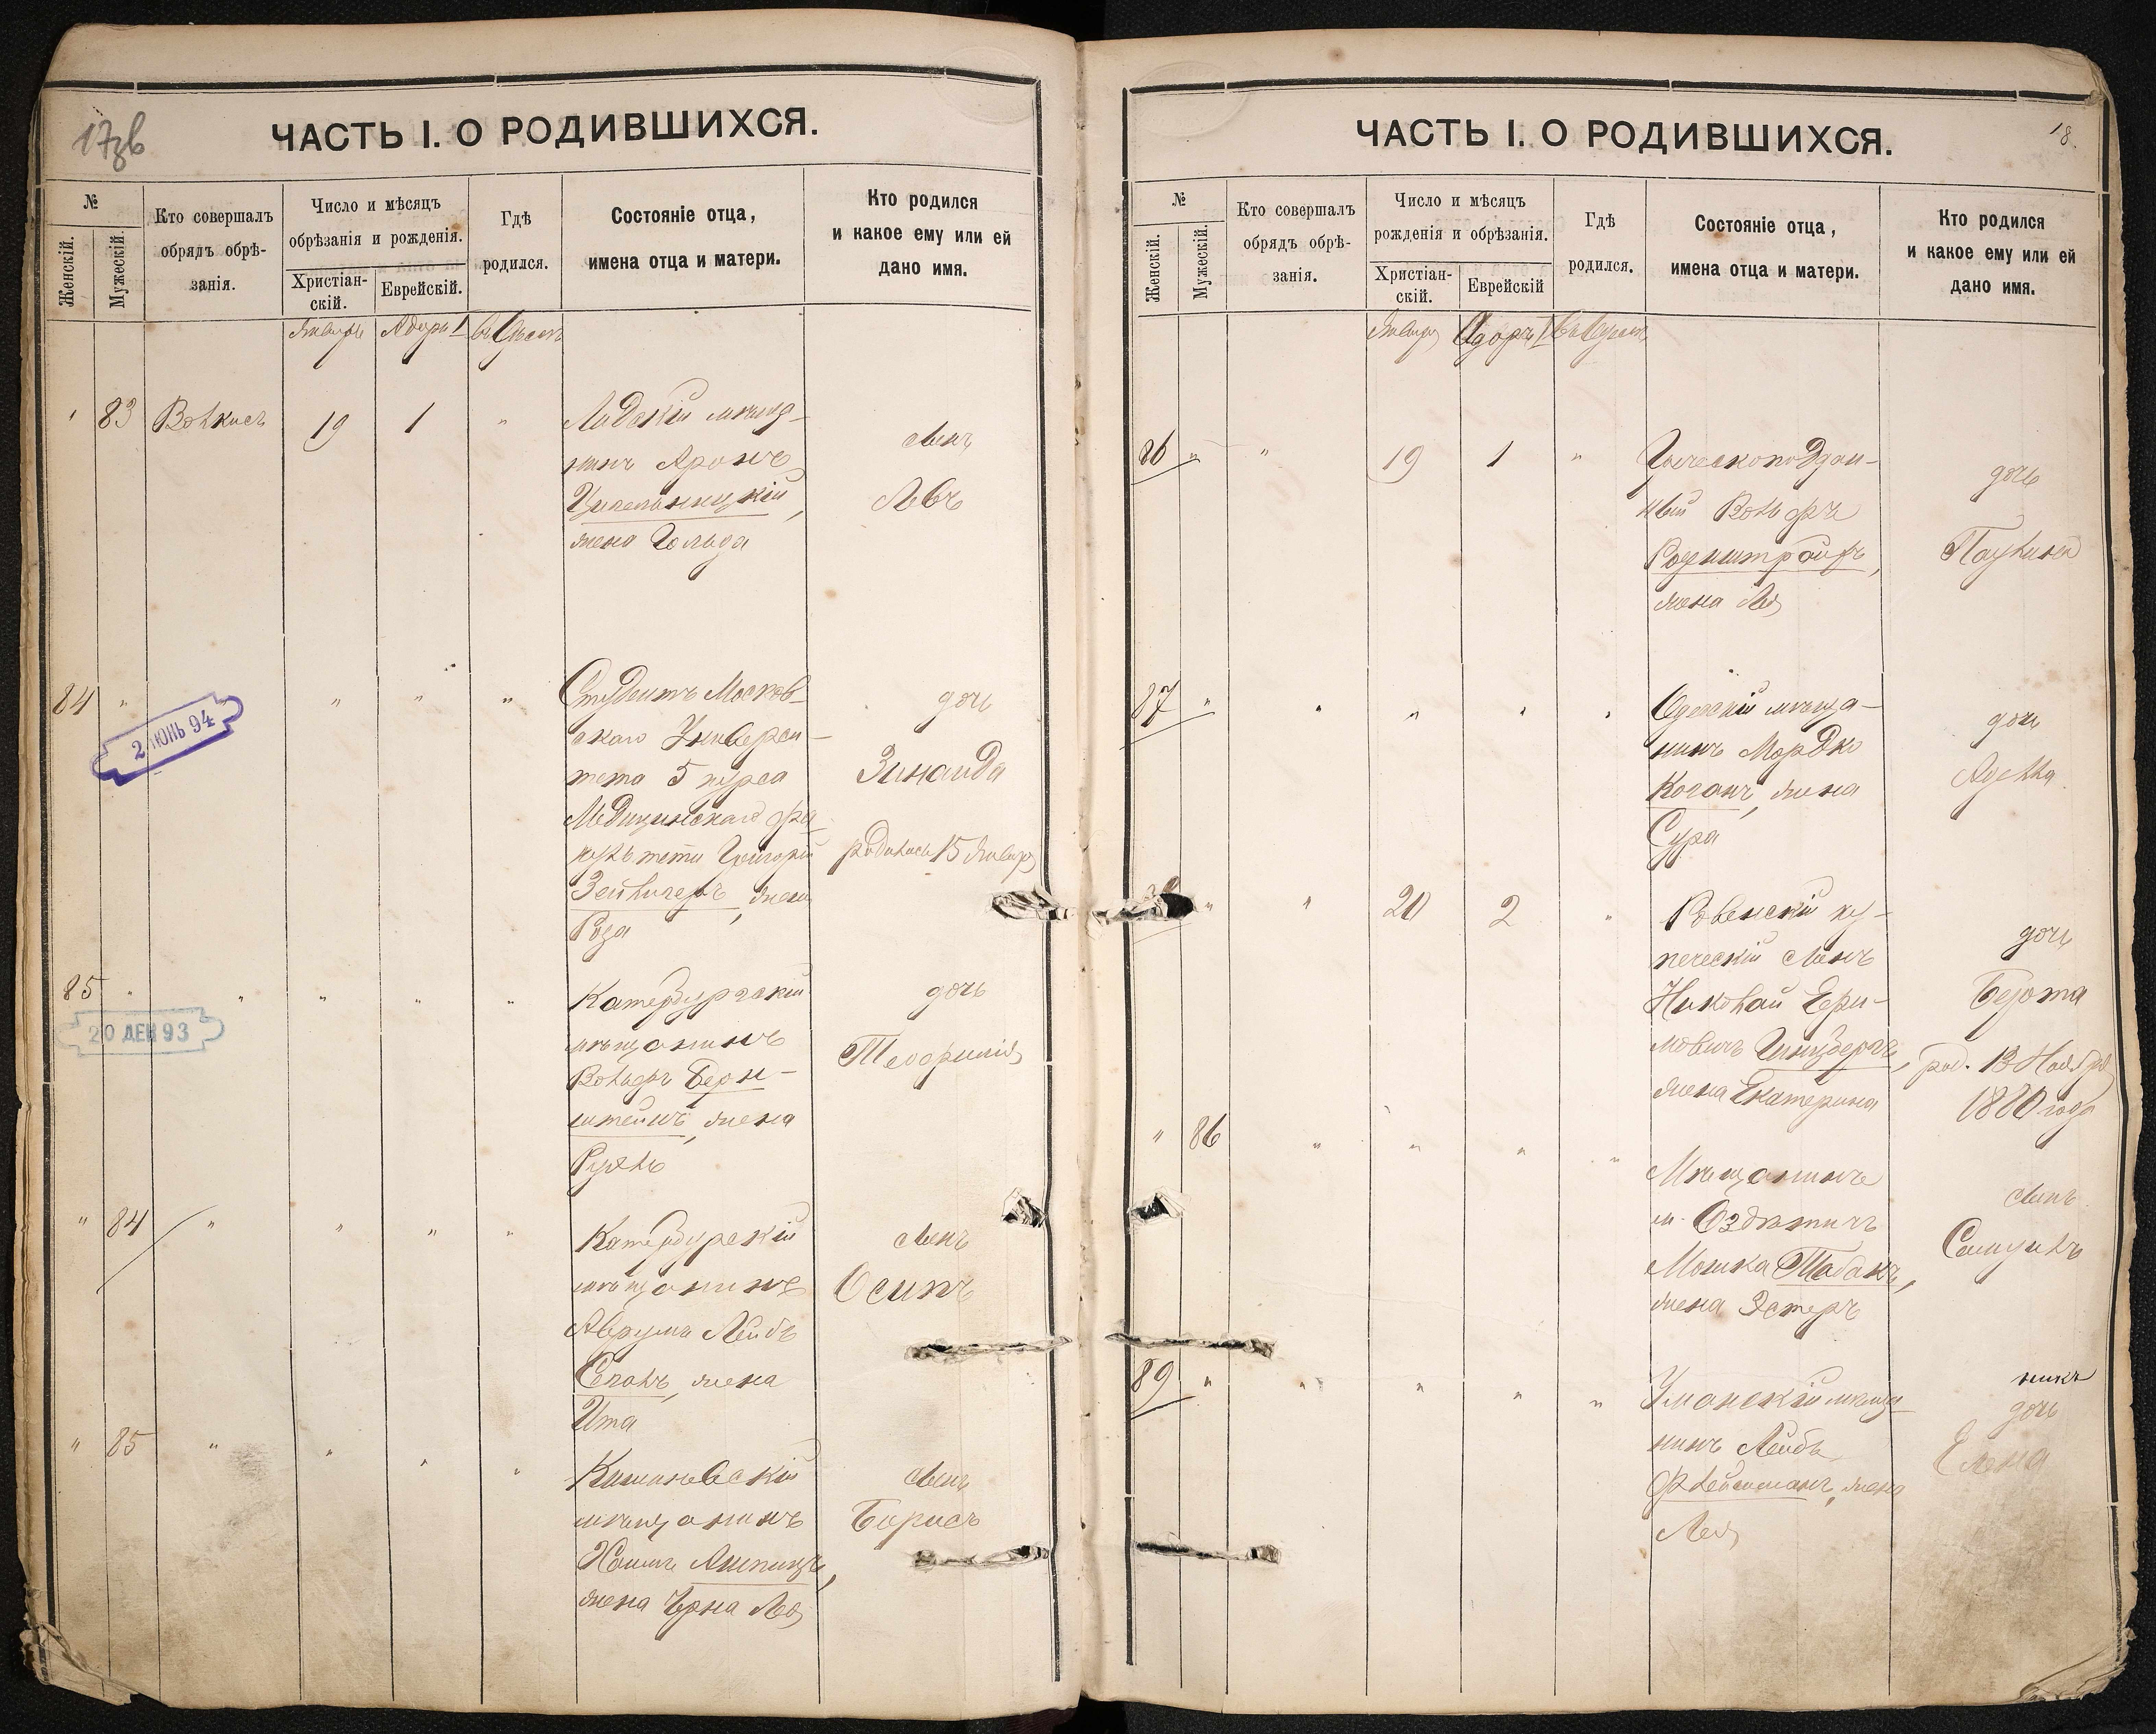 17зв
ЧАСТЬ I. О РОДИВШИХСЯ.
№
Женскій.
Мужескій.
Кто совершалъ
обрядъ обрѣ-
занія.
Число и мѣсяцъ
обрѣзанія и рожденія.
Христіан-
скій.
Еврейскій.
Гдѣ
родился.
Состояніе отца,
имена отца и матери.
Кто родился
и какое ему или ей
дано имя.
Января Адаръ I въ Одессѣ
83 19 1 "
Лидскій мѣща-
нинъ Аронъ
жена Гольда
сынъ
Левъ
84 " " " "
2 ІЮНЬ 94
Студентъ Москов-
скаго Универси-
тета 5 курса
Медицинскаго фа-
культета Григорій
Зейлигеръ, жена
Роза
дочь
Зинаида
родилась 15 Января
85 " " " " "
20 ДЕК 93
Катербургскій
мѣщанинъ
Вольфъ Берн-
штейнъ, жена
Рухль
дочь
Теофилія
" 84 " " " "
Катербурскій
мѣщанинъ
Аврумъ Лейбъ
жена
Ита
сынъ
Осипъ
" 85 " " " "
Кишиневскій
мѣщанинъ
Хаимъ
жена Чрна Лея
сынъ
Борисъ
18.
ЧАСТЬ I. О РОДИВШИХСЯ.
№
Женскій.
Мужескій.
Кто совершалъ
обрядъ обрѣ-
занія.
Число и мѣсяцъ
рожденія и обрѣзанія.
Христіан-
скій.
Еврейскій
Гдѣ
родился.
Состояніе отца,
имена отца и матери.
Кто родился
и какое ему или ей
дано имя.
Января Адаръ I въ Одессѣ
86 " " 19 1 "
Греческоподдан-
ный Вольфъ
жена Лея
дочь
Паулина
87 " " " " "
Одесскій мѣща-
нинъ Мордко
Коганъ, жена
Сура
дочь
Аделла
" " 20 2 "
Ровенскій ку-
печескій сынъ
Николай Ефи-
мовичъ Гинцбергъ,
жена Екатерина
дочь
Берта
род. 13 Ноября
1880 года
" 86 " " " "
Мѣщанинъ
м. Оздѣтичъ
Мошка Табакъ,
жена Эстеръ
сынъ
Самуилъ
89 " " " " "
Уманскій мѣща-
нинъ Лейбъ
Флейсшманъ, жена
Лея
дочь
Елена